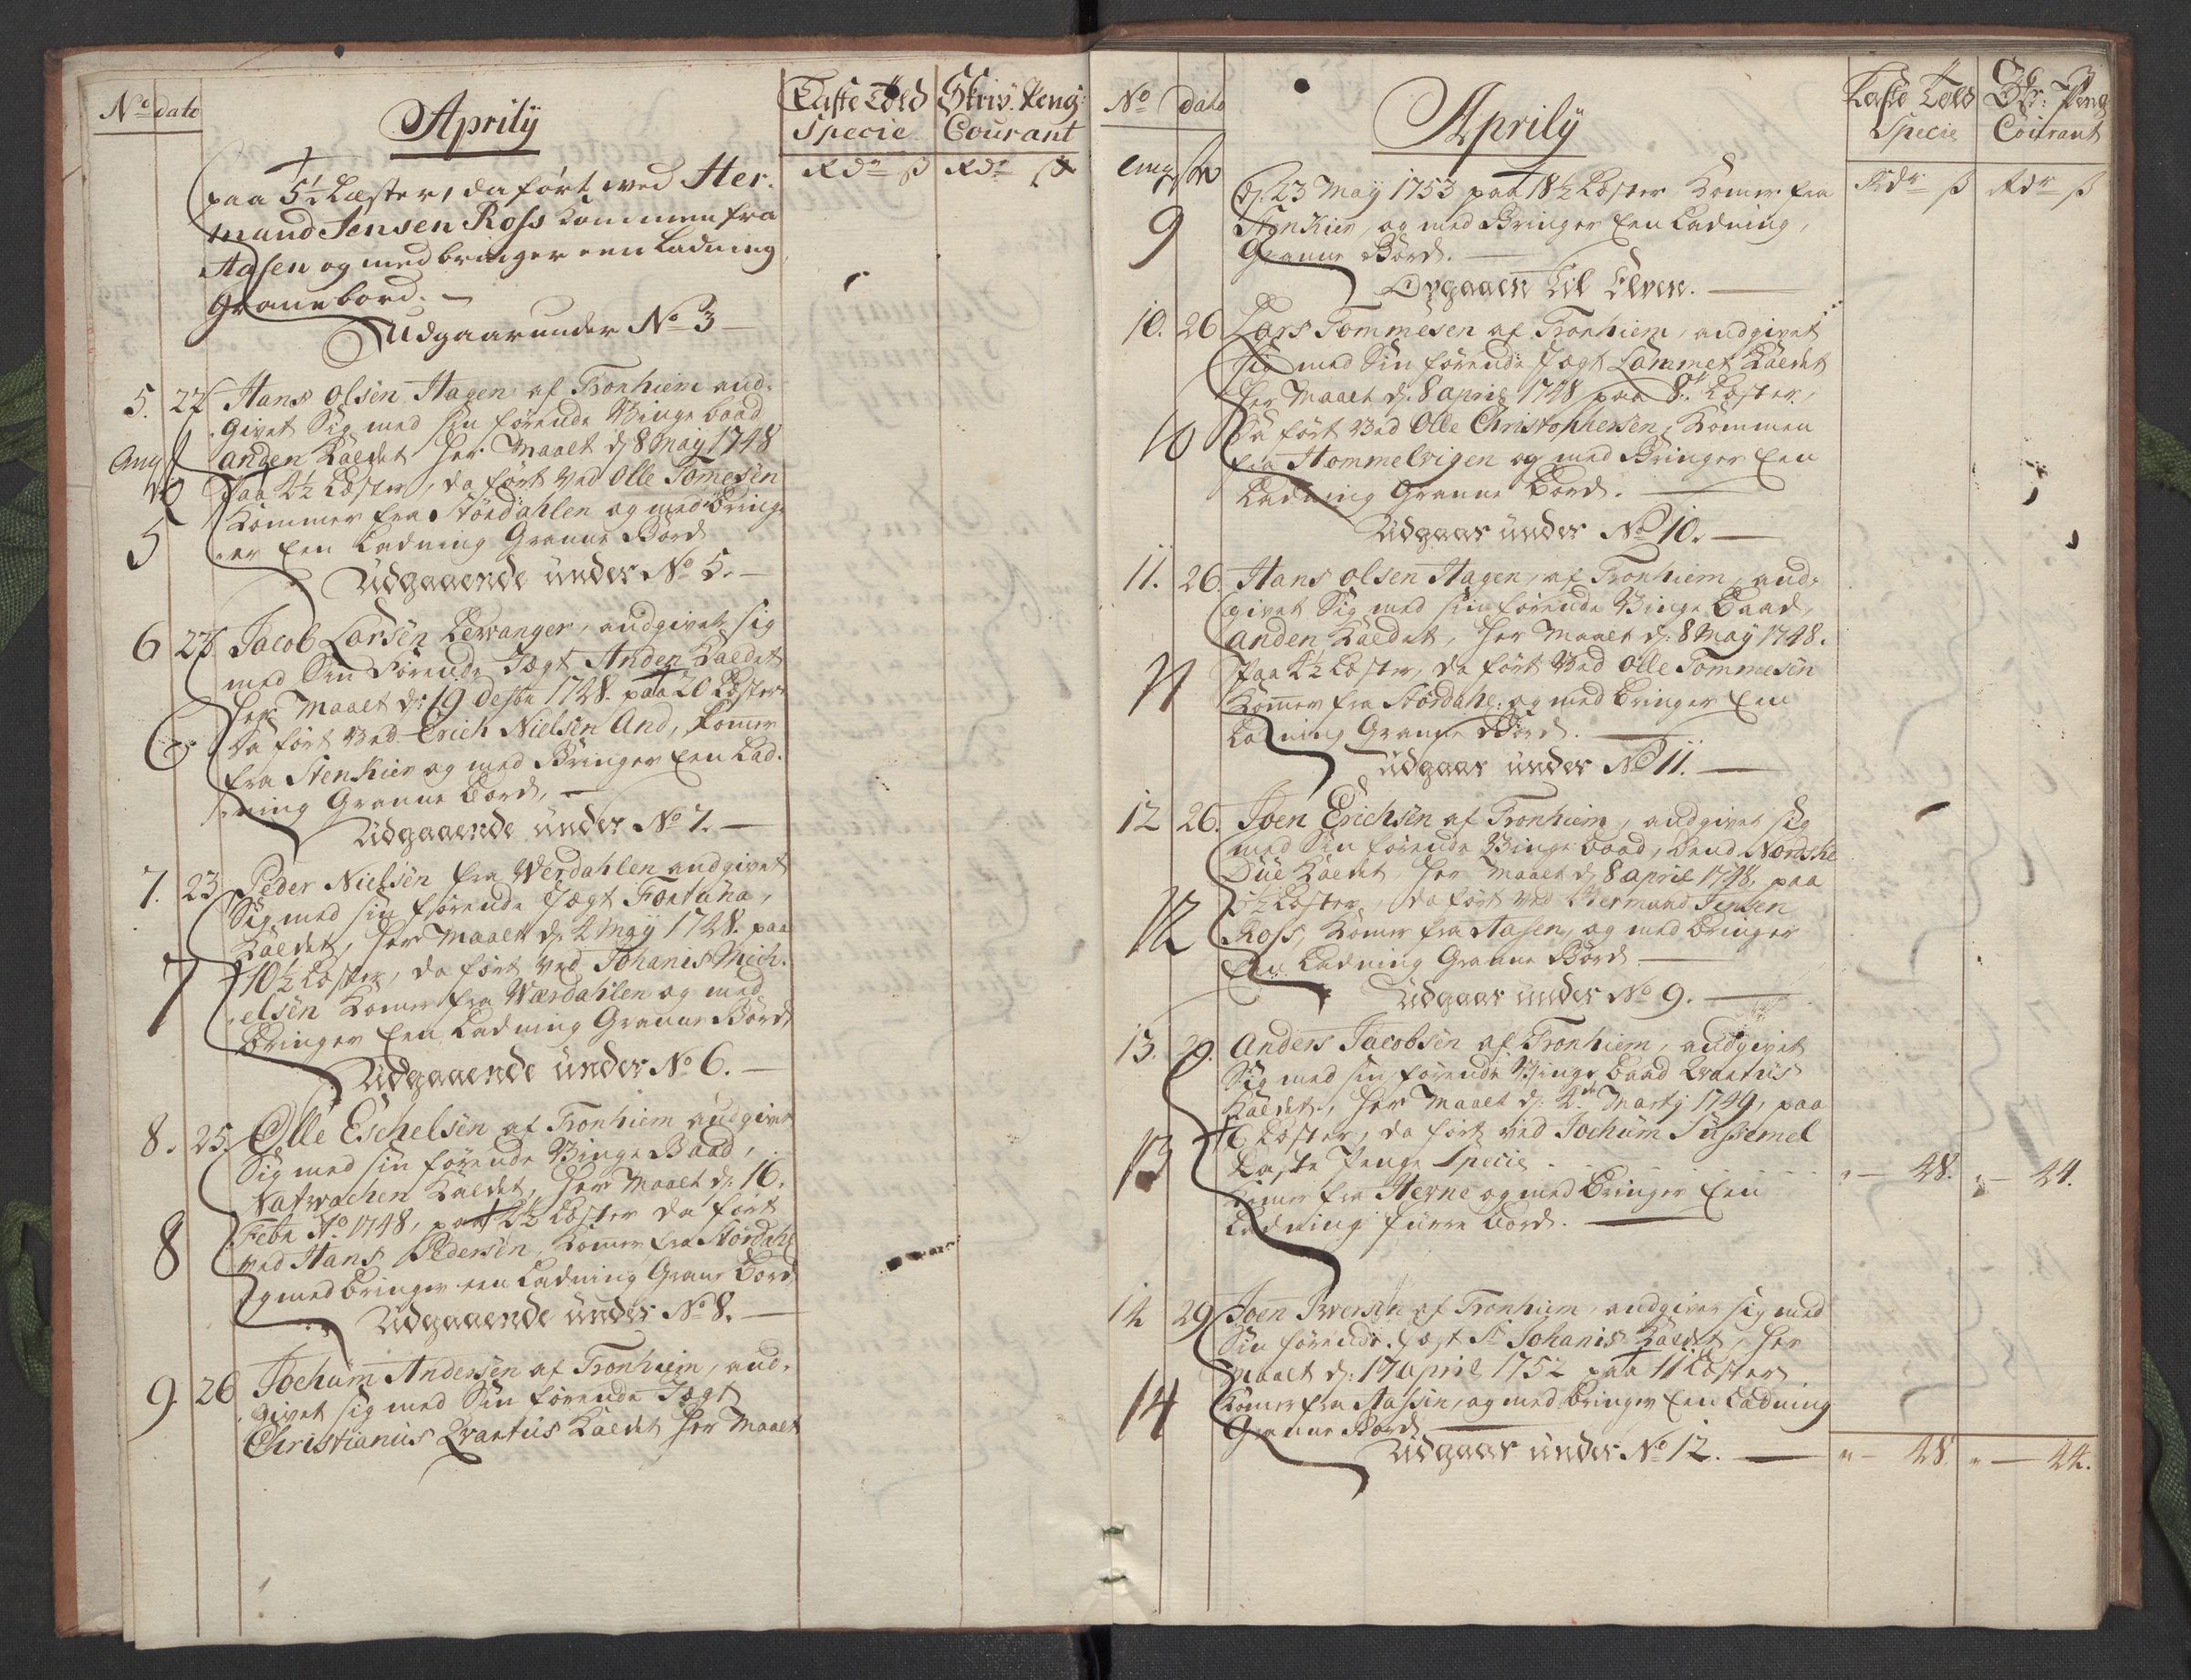 No dato
Aprilÿ
Laste Told Skriv. Peng:
Specie Courant
Rdr ß Rdr ß
paa 5½ Læster, da ført ved Her-
mund Jensen Ross kommen fra
Aasen og medbringer een Ladning
Granebord. —
Udgaar under No 3 —
5. 22 Hans Olsen Hagen af Tronhiem aud-
givet Sig med sin førende Bingebaad
anden Kaldet her Maalt d. 8 Maÿ 1748
5
Paa 4½ Læster, da ført ved Olle Tomesen
Kommer fra Stördahlen og medbring-
er Een Ladning Granne Bord
Udgaaende under No 5. —
6 22 Jacob Larsen Levanger, audgivet sig
med Sin Førende Jægt Anden Kaldet
her Maalt d: 19 1748. paa 20 Læster
Da ført Ved Erich Nielsen And, komer
6.
fra Stenkier og med Bringer Een Lad-
ning Granne Bord, —
Udgaaende under No 7. —
7. 23 Peder Nielsen fra Werdahlen audgivet
Sig med sin førende Jægt Fortuna,
Kaldet, her Maalt d. 2 Maÿ 1748. paa
7
10½ Læster, da ført Ved Johanis Mich-
elsen Komer fra Wardahlen og med
Bringer Een Ladning Granne Bord
Udgaaende under No 6. —
8. 25. Olle Eschelsen af Tronhiem audgivet
Sig med sin førende Binge Baad,
Natvachen Kaldet, her Maalt d. 16.
8
Febr Ao. 1748, paa 2½ Læster da ført
ved Hans Pedersen, Komer fra Stördahl
og med bringer een Ladning Grane Bord
Udgaaende under No 8. —
9. 26 Jochum Andersen af Tronhiem, aud-
givet sig med Sin førende Jægt
Christianus Qvartus Kaldet her Maalt
No Dato
Aprilÿ
Laste Told Skr: Peng
Specie Courant
Rdr ß Rdr ß
9
d. 23 Maÿ 1753 paa 18½ Læster Komer fra
Stenkier, og med Bringer Een Ladning,
Granne Bord. —
Opgaaer Til Elven. —
10. 26 Lars Tommesen af Tronhiem, audgivet
sig med Sin førende Jægt Lammet Kaldet
her Maalt d. 8 april 1748, paa 8. Læster,
10
Da ført Ved Olle Christophersen, Kommen
fra Hommelvigen og med Bringer Een
Ladning Granne Bord. —
Udgaar under No 10. —
11. 26. Hans Olsen Hagen, af Tronhiem, aud-
givet Sig med sin førende Binge Baad,
anden Kaldet, her Maalt d. 8 Maÿ 1748.
11
Paa 4½ Læster, da ført Ved Olle Tommesen
Komer fra Stördahl. og med bringer Een
Ladning Granne Bord. —
Udgaar under No 11. —
12 26. Joen Erichsen af Tronhiem, audgivet sig
med Sin førende Binge baad, Dend Nordske
Due Kaldet, her Maalt d. 8 april 1748, paa
12
5½ Læster, da ført ved Hermund Jensen
Ross, Komer fra Aasen, og med bringer
Een Ladning Granne Bord —
Udgaar under No 9. —
13. 29. Anders Jacobsen af Tronhiem, audgivet
Sig med sin førende Binge baad Qvartus
Kaldet, her Maalt d. 4de Martÿ 1749, paa
13
6 Læster, da ført ved Jochum Sussemel
Laste Penge Specie . . . . " — 48. " — 24.
Komer fra Herne og med Bringer Een
Ladning furre bord. —
14 29 Joen Iversen af Tronhiem, audgiver sig med
Sin førende Jægt St Johanis Kaldet, her
Maalt d: 17 april 1752 paa 11 Læster
14
Komer fra Aassen, og med bringer Een Ladning
Granne Bord —
Udgaar under No 12. — " — 48. " — 24.